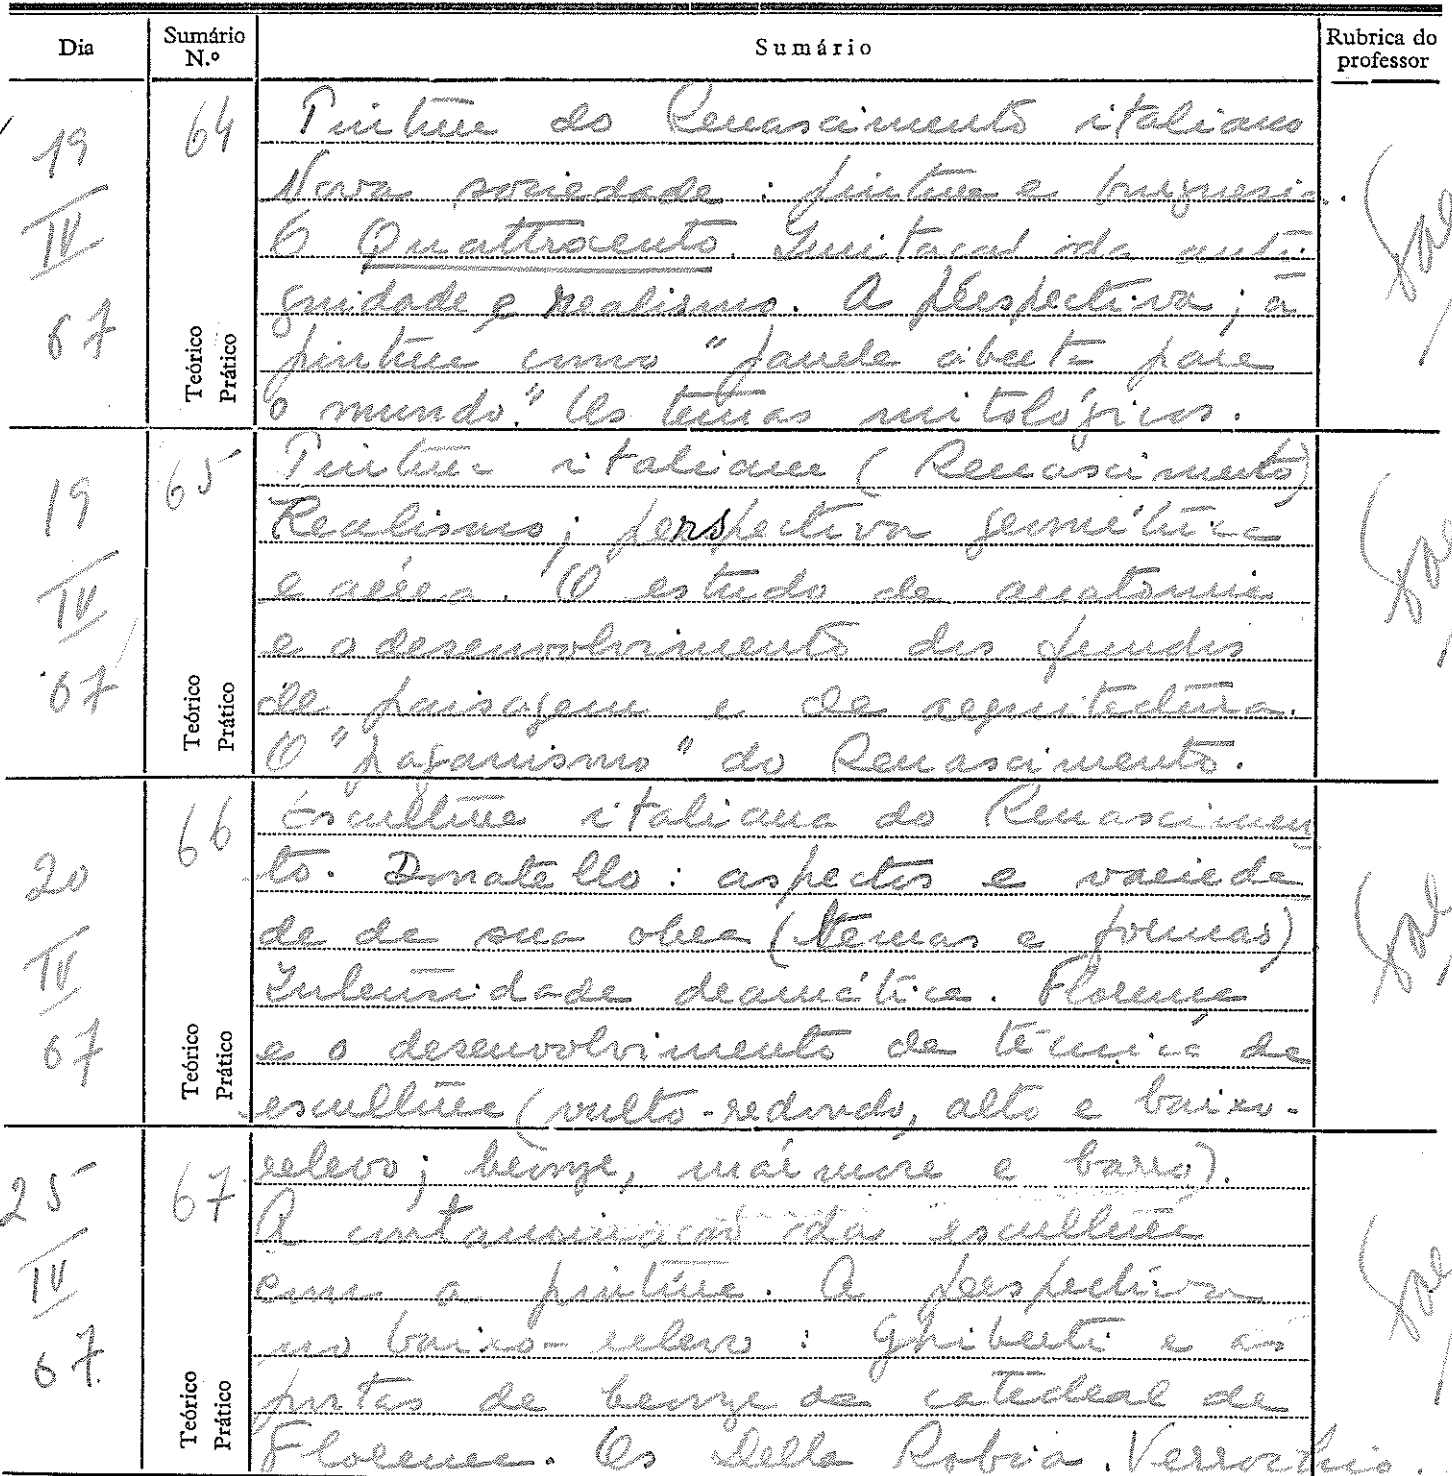 Dia
Sumário N.º
Sumário
Rubrica do professor
19 IV 67
64
Teórico
Prático
Pintura do Renascimento italiano
Nova sociedade: pintura e burguesia.
O Quattrocento. Imitação da anti-
guidade e realismo. A perspectiva; a
pintura como "janela aberta para
o mundo". Os temas mitológicos.
19 IV 67
65
Teórico
Prático
Pintura italiana (Renascimento)
Realismo; perspectiva geométrica
e aérea. O estudo da anatomia
e o desenvolvimento dos fundos
de paisagem e de arquitectura.
O "paganismo" do Renascimento.
20 IV 67
66
Teórico
Prático
Escultura italiana do Renascimen
to. Donatello: aspectos e varieda
de da sua obra (temas e formas)
Intensidade dramática. Florença
e o desenvolvimento da técnica da
escultura (vulto-redondo, alto e baixo-
25 IV 67
67
Teórico
Prático
relevo; bronze, mármore e barro).
A contaminação da escultura
com a pintura. A perspectiva
no baixo-relevo: Ghiberti e as
portas de bronze da catedral de
Florença. Os Della Robia. Verrochio.